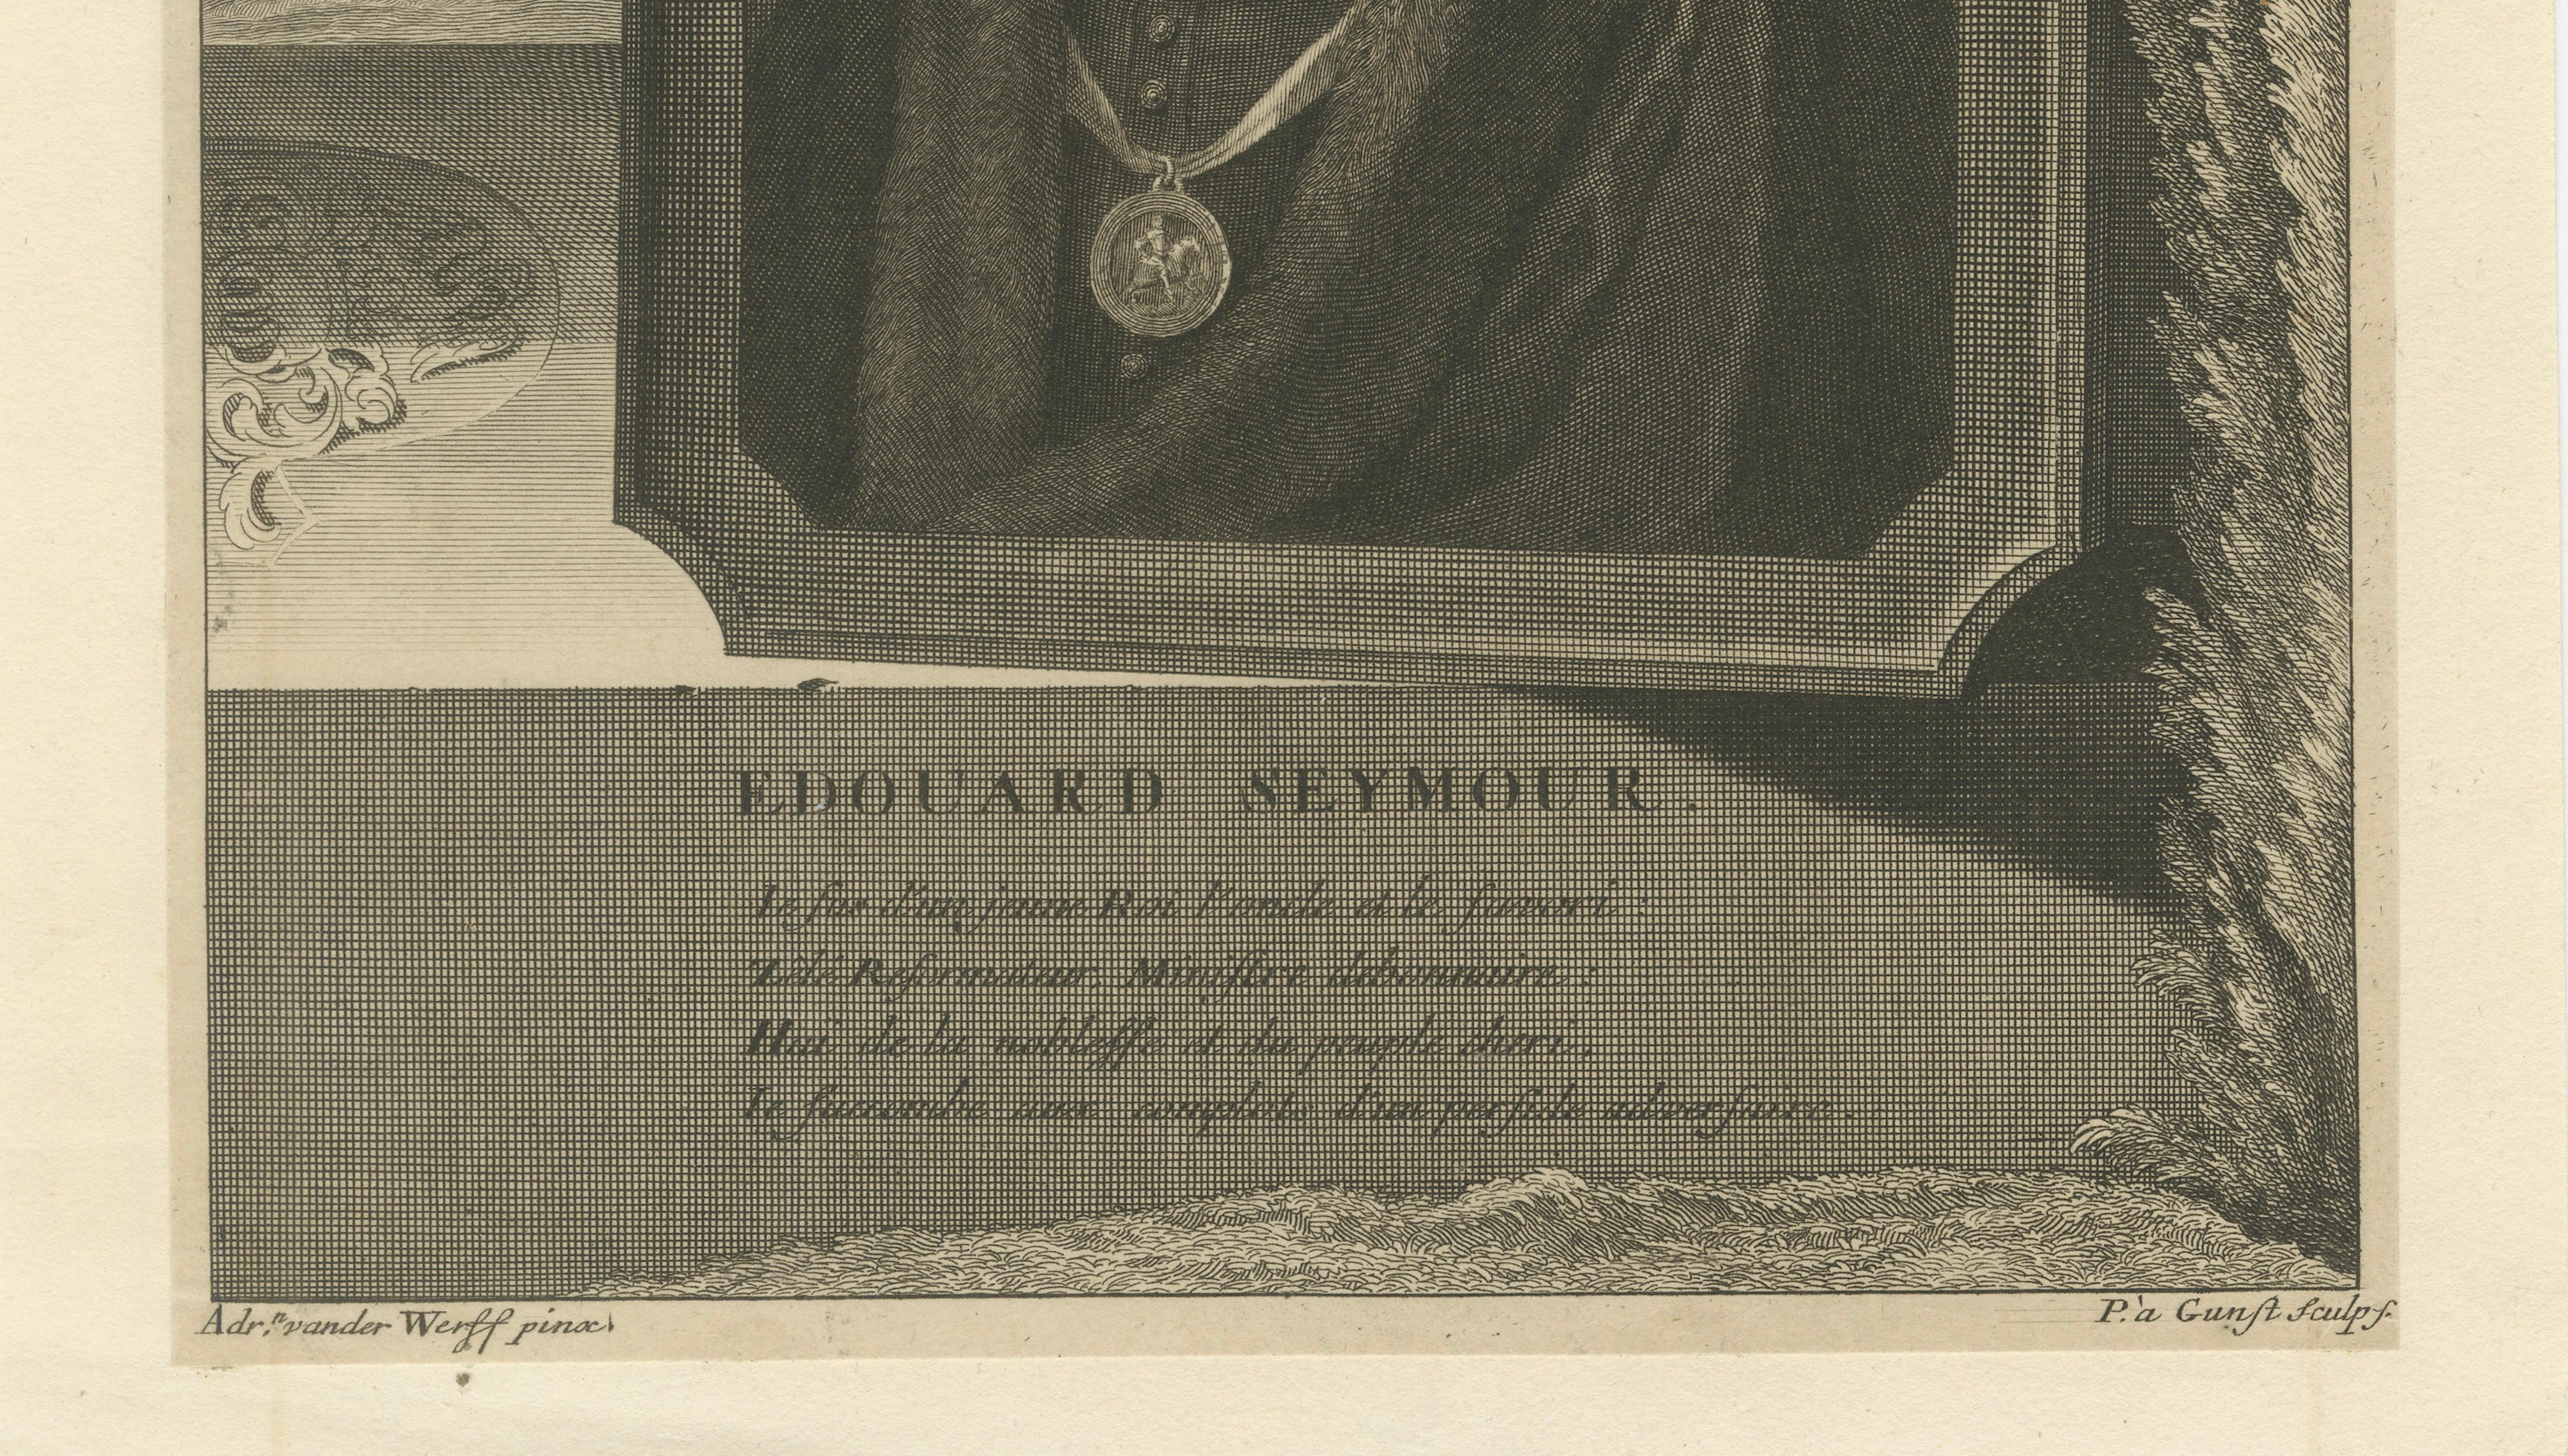 EDOUARD SEYMOUR.
Je fus d'un jeune Roi l'oncle et le favori:
Zélé Reformateur, Ministre debonnaire:
Haï de la noblesse et du peuple cheri,
Je succombe aux complots d'un perfide adversaire.
Adr.n vander Werff pinx.
P. à Gunst sculps.